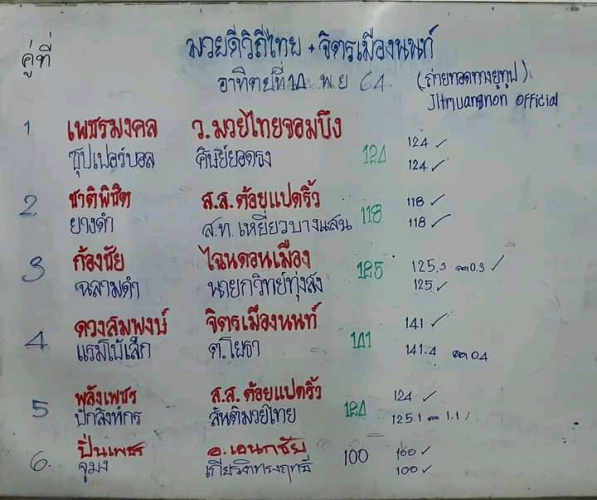 คู่ที่ มวยดีวิถีไทย + จิตรเมืองนนท์
อาทิตย์ที่ 14 พย 64 (ถ่ายทอดทางยูทูป)
Jitmuangnon official
1 เพชรมงคล ว.มวยไทยจอมบึง 124 ✓
ซุปเปอร์บอล ศิษย์ยอดธง 124 124 ✓
2 ชาติพิชิต ส.ส.ต้อยแปดริ้ว 118 ✓
ยางดำ ส.ท.เหยี่ยวบางแสน 118 118 ✓
3 ก้องชัย ไฉนดอนเมือง 125.3 0.3 ✓
ฉลามดำ นายกวิทย์ทุ่งสง 125 125 ✓
4 ดวงสมพงษ์ จิตรเมืองนนท์ 141 ✓
แรมโบ้เล็ก ต.โยธา 141 141.4 0.4
5 พลังเพชร ส.ส.ต้อยแปดริ้ว 124 ✓
ปักสิงห์กร สันติมวยไทย 124 125.1 1.1
6. ปิ่นเพชร อ.เอนกชัย 100 100 ✓
จูมง เกียรติทรงฤทธิ์ 100 ✓